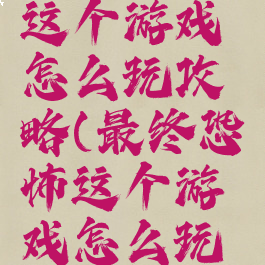 这个游戏
怎么玩攻
略(最终恐
怖这个游
戏怎么玩